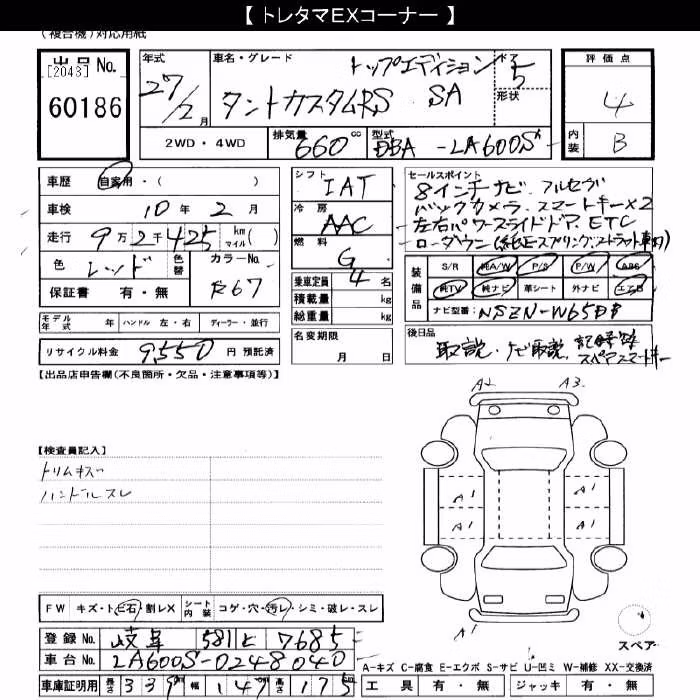 【 トレタマEXコーナー 】
(複合機)対応用紙
出品No.
[2043]
60186
年式
27/2月
車名・グレード
トップエディション
タントカスタムRS SA
ドア
5
形状
評価点
4
内装
B
2WD・4WD
排気量
660cc
型式
DBA-LA600S
車歴 自家用・( )
車検 10年2月
走行 9万2千425 km マイル( )
色 レッド 色替 カラーNo. R67
保証書 有・無
モデル年式 年 ハンドル 左・右 ディーラー・並行
リサイクル料金 9,550 円 預託済
シフト
IAT
冷房
AAC
燃料
G
乗車定員 4名
積載量 kg
総重量 kg
名変期限
月 日
セールスポイント
8インチナビ. フルセグ
バックカメラ. スマートキー×2
左右パワースライドドア. ETC
ローダウン(純正スプリング.ストラット車載)
装備品
S/R 純A/W P/S P/W ABS
純TV 純ナビ 革シート 外ナビ エアB
ナビ型番: NSZN-W65DB
後日品
取説・ナビ取説. 記録簿
スペアスマートキー
【出品店申告欄(不良箇所・欠品・注意事項等)】
【検査員記入】
トリムキズ
ハンドルスレ
A2 A3
A1 A1
A1 A1
A1
スペア
FW キズ・トビ石・割レX シート内装 コゲ・穴・汚レ・シミ・破レ・スレ
登録No. 岐阜 581 と 7685
車台No. LA600S-0248040
車庫証明用 長さ 339 幅 147 高さ 175
A-キズ C-腐食 E-エクボ S-サビ U-凹ミ W-補修 XX-交換済
工具 有・無 ジャッキ 有・無